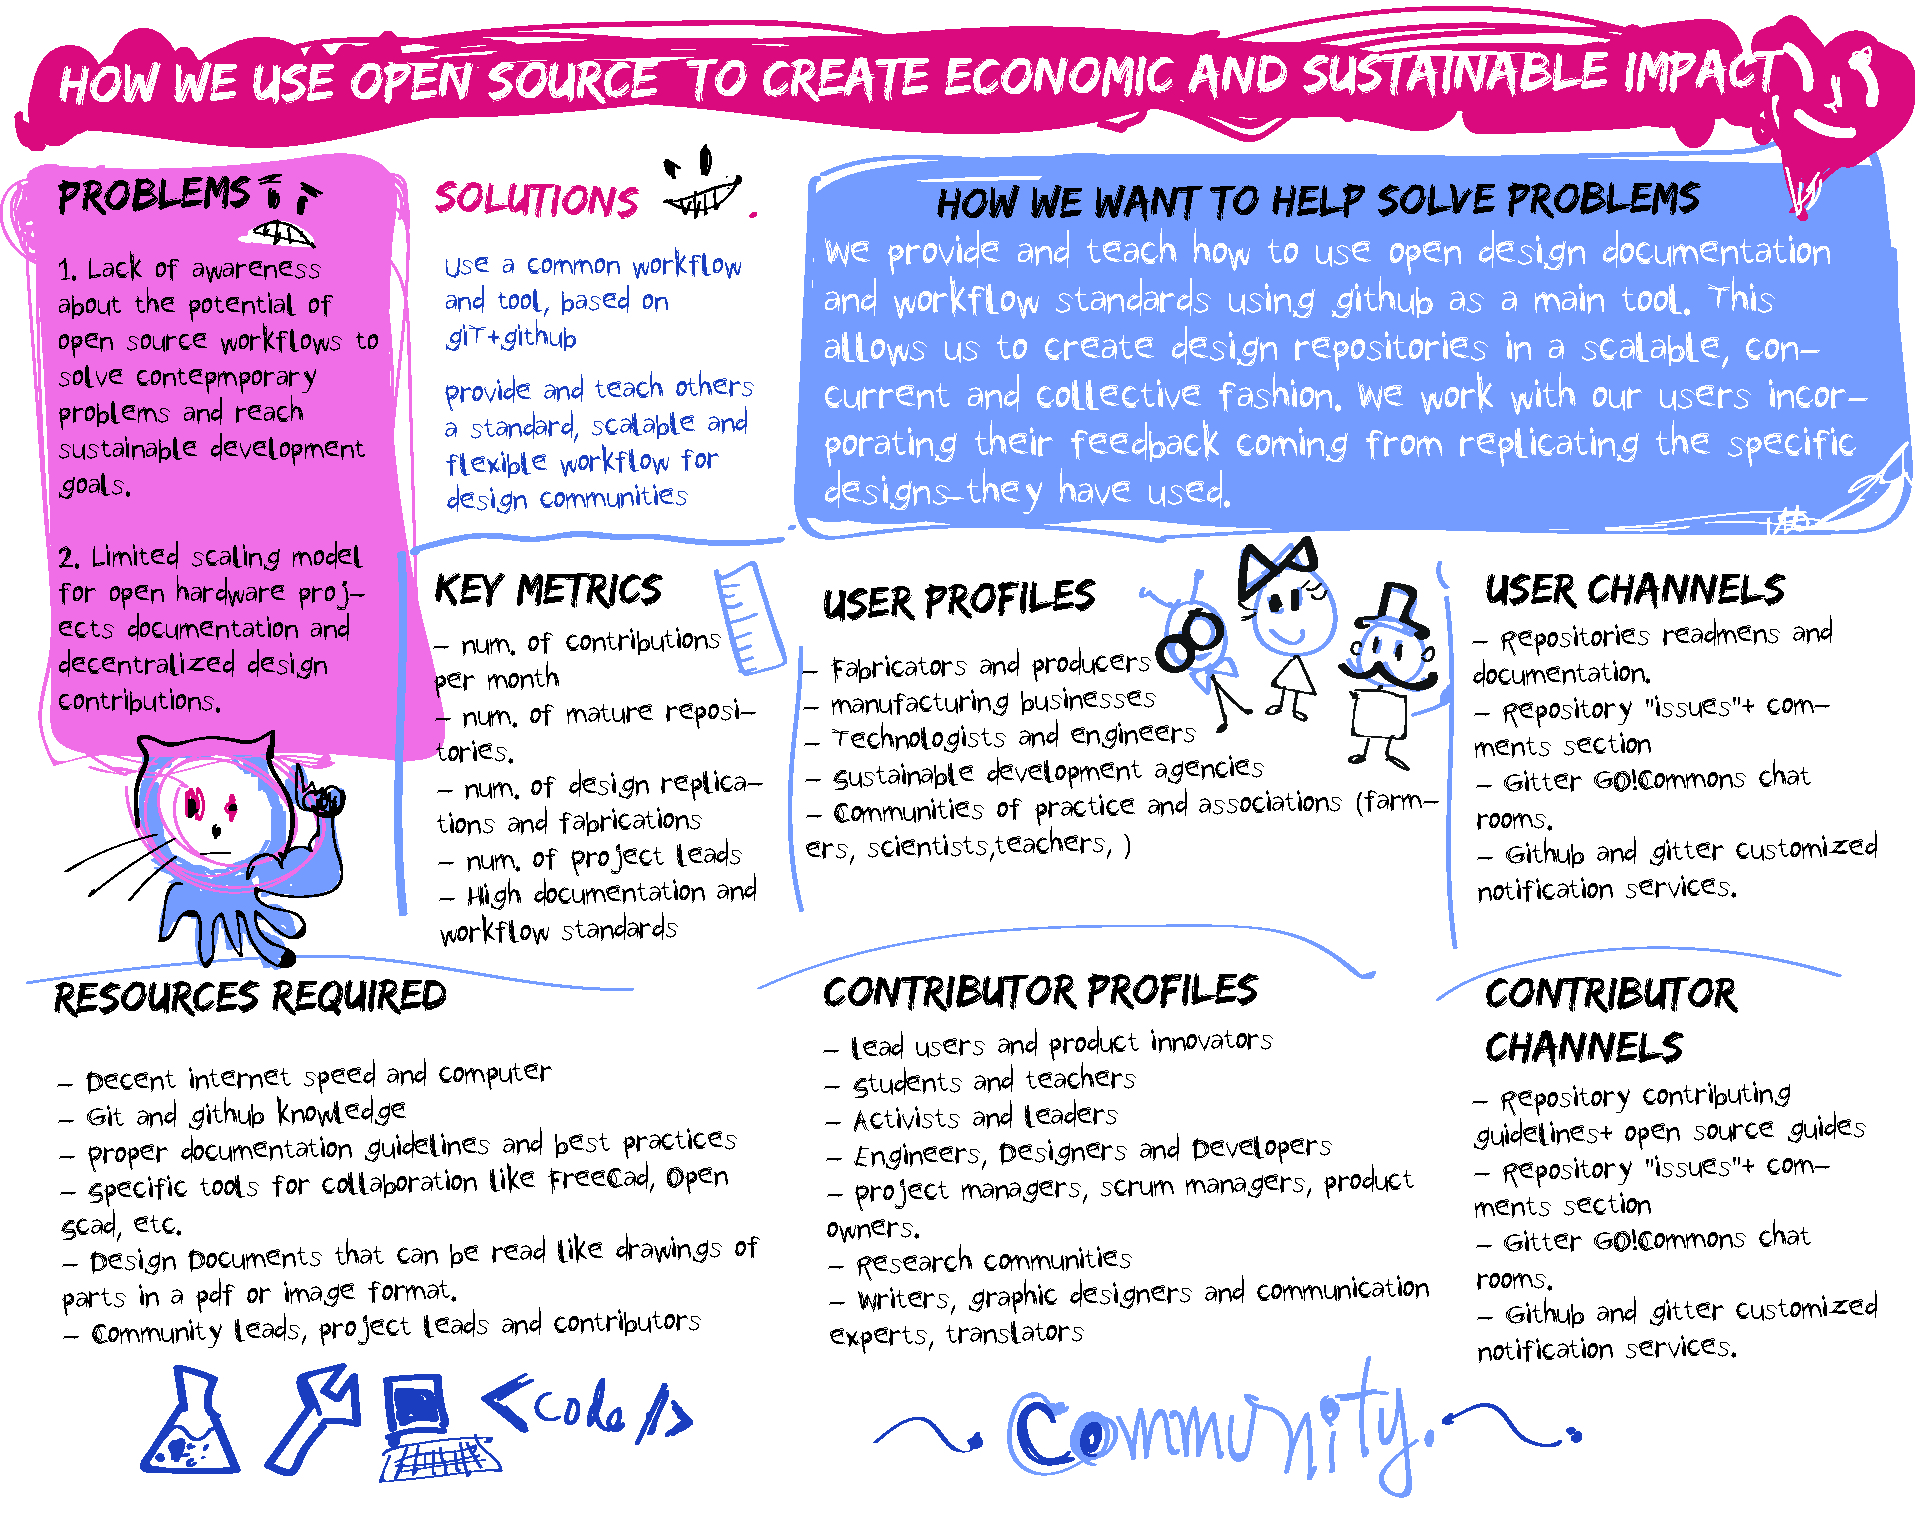 HOW WE USE OPEN SOURCE TO CREATE ECONOMIC AND SUSTAINABLE IMPACT
PROBLEMS
1. Lack of awareness
about the potential of
open source workflows to
solve contepmporary
problems and reach
sustainable development
goals.
2. Limited scaling model
for open hardware proj-
ects documentation and
decentralized design
contributions.
SOLUTIONS
use a common workflow
and tool, based on
giT+github
provide and teach others
a standard, scalable and
flexible workflow for
design communities
HOW WE WANT TO HELP SOLVE PROBLEMS
We provide and teach how to use open design documentation
and workflow standards using github as a main tool. This
allows us to create design repositories in a scalable, con-
current and collective fashion. We work with our users incor-
porating their feedback coming from replicating the specific
designs they have used.
KEY METRICS
- num. of contributions
per month
- num. of mature reposi-
tories.
- num. of design replica-
tions and fabrications
- num. of project leads
- High documentation and
workflow standards
USER PROFILES
- Fabricators and producers
- manufacturing businesses
- Technologists and engineers
- Sustainable development agencies
- Communities of practice and associations (farm-
ers, scientists,teachers, )
USER CHANNELS
- Repositories readmens and
documentation.
- Repository "issues"+ com-
ments section
- Gitter GO!Commons chat
rooms.
- Github and gitter customized
notification services.
RESOURCES REQUIRED
- Decent internet speed and computer
- Git and github knowledge
- proper documentation guidelines and best practices
- specific tools for collaboration like FreeCad, Open
scad, etc.
- Design Documents that can be read like drawings of
parts in a pdf or image format.
- Community leads, project leads and contributors
<code/>
CONTRIBUTOR PROFILES
- Lead users and product innovators
- Students and teachers
- Activists and leaders
- Engineers, Designers and Developers
- project managers, scrum managers, product
owners.
- Research communities
- Writers, graphic designers and communication
experts, translators
Community.
CONTRIBUTOR
CHANNELS
- Repository contributing
guidelines+ open source guides
- Repository "issues"+ com-
ments section
- Gitter GO!Commons chat
rooms.
- Github and gitter customized
notification services.